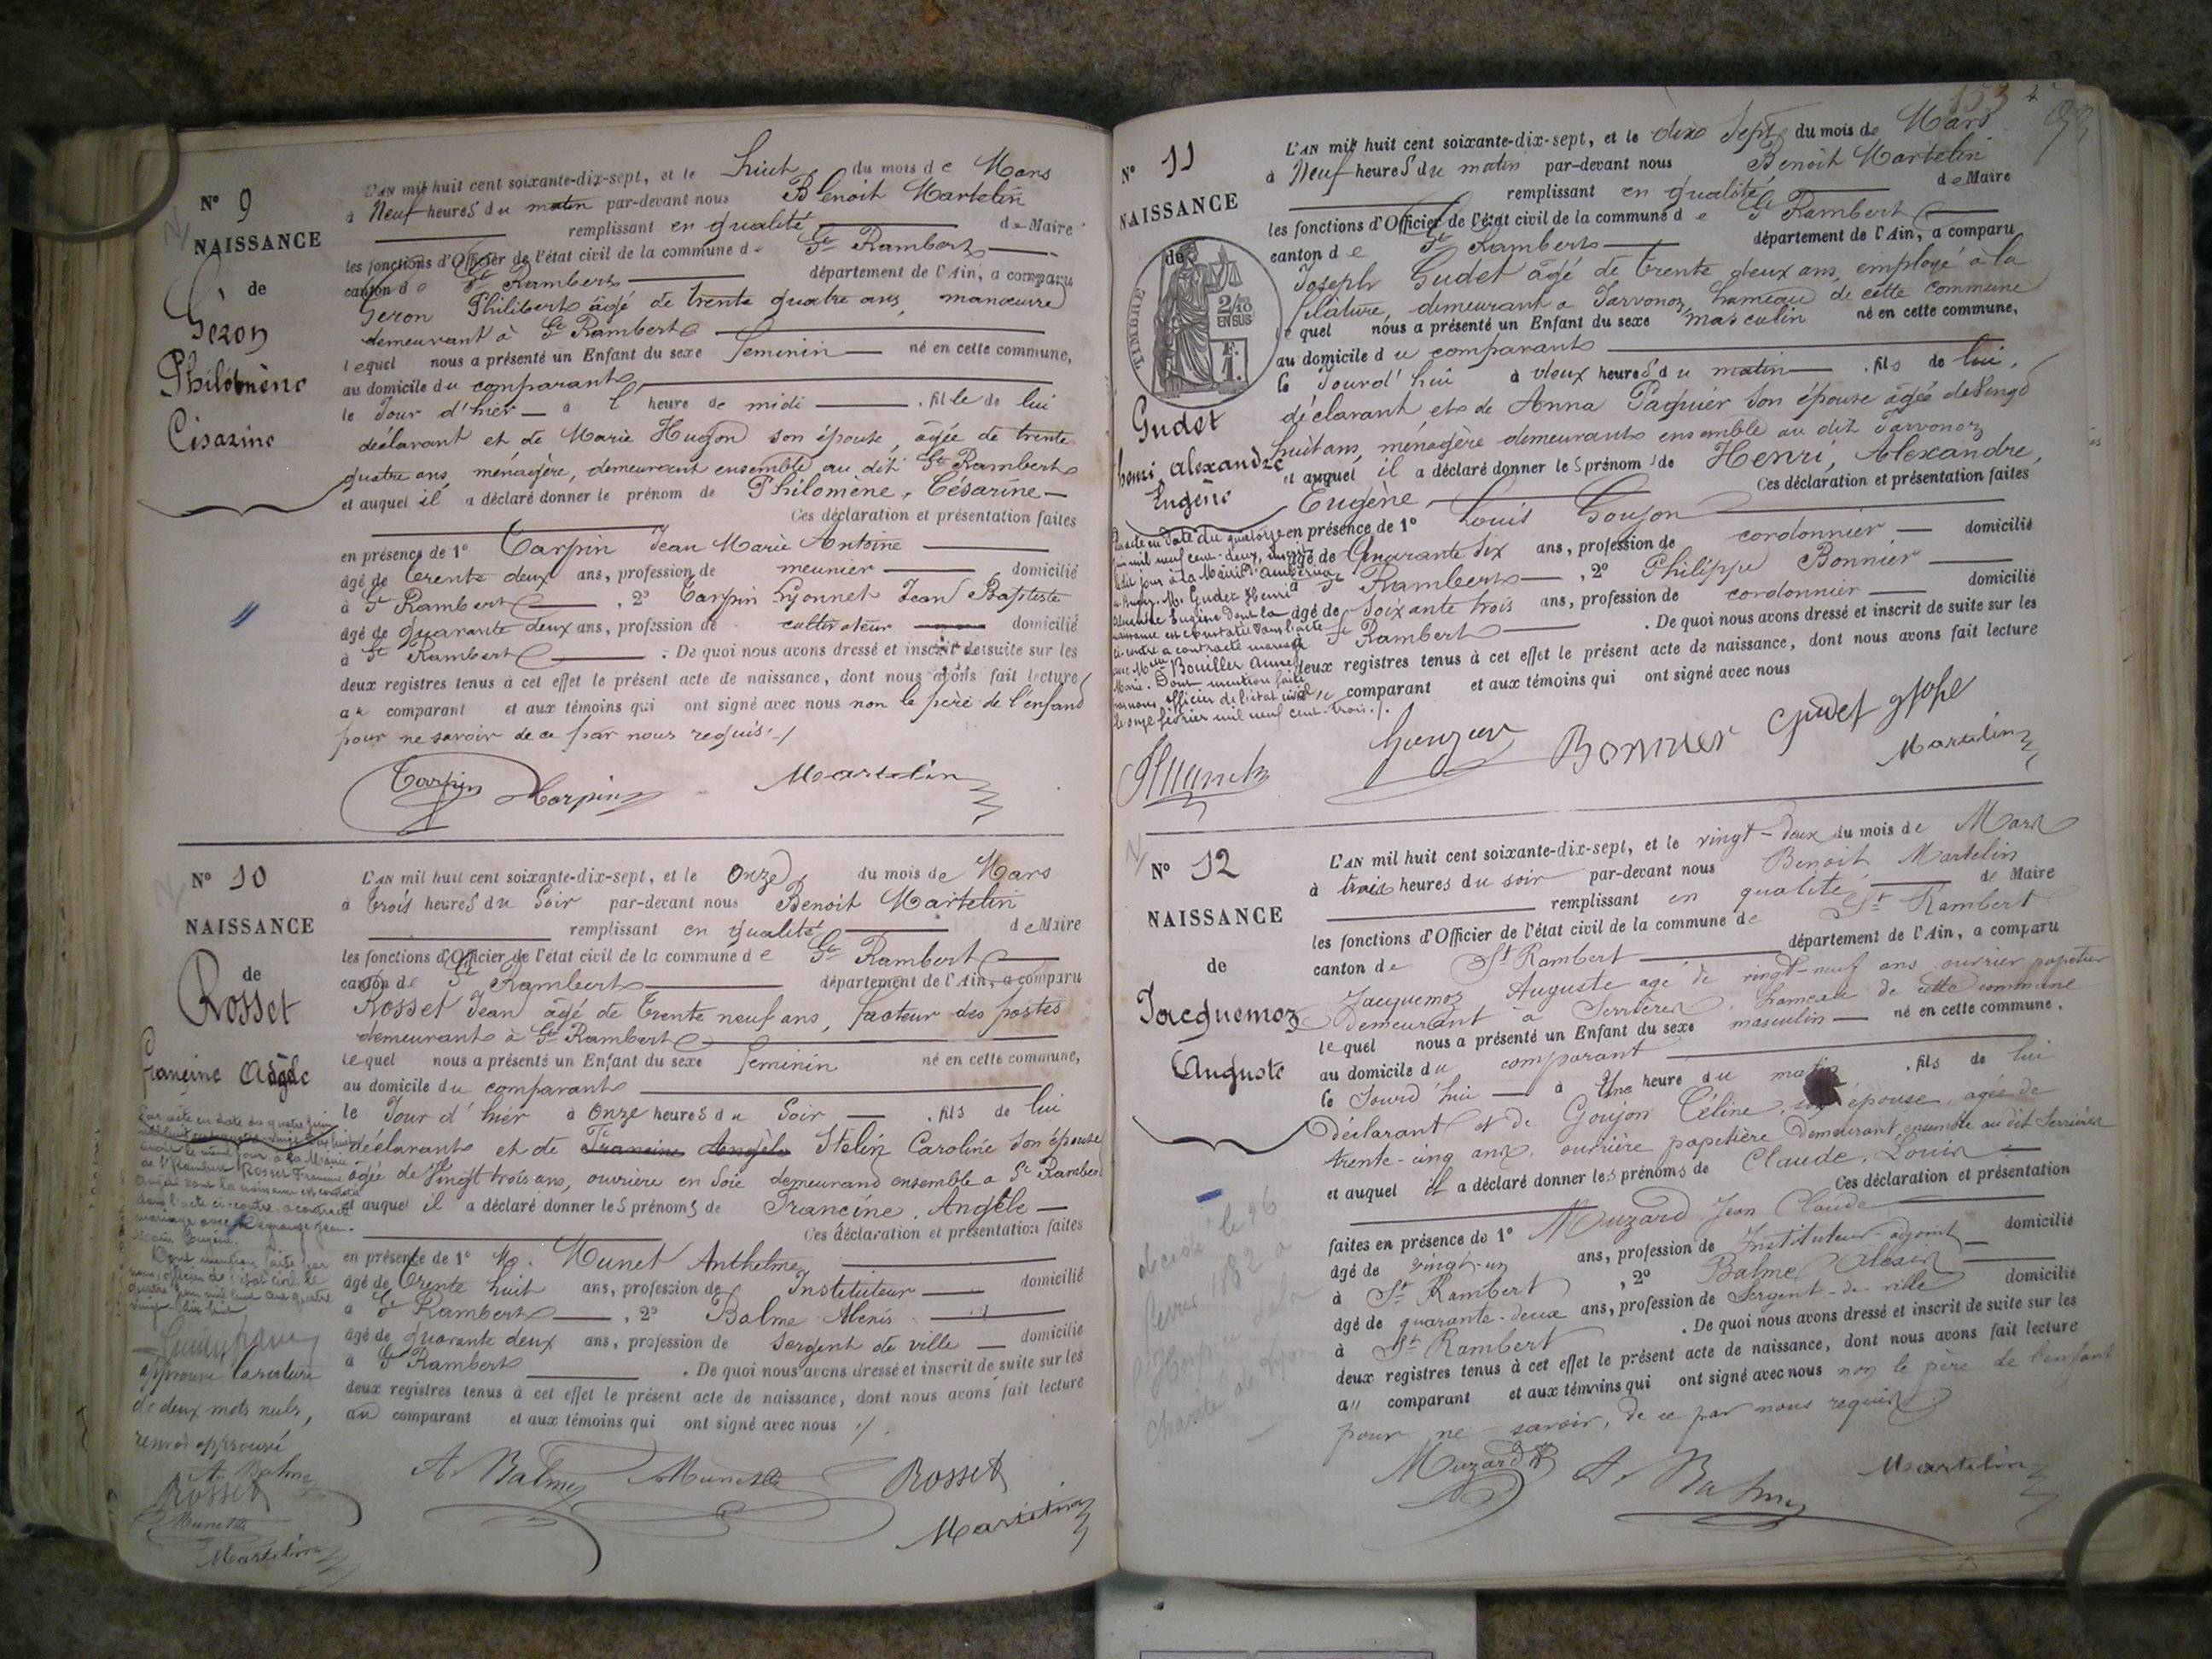 N° 9
NAISSANCE
de
Geron
Philomène
Césarine
L'AN mil huit cent soixante-dix-sept, et le huit du mois de Mars
à Neuf heures du matin par-devant nous Benoit Martelin
remplissant en qualité de Maire
les fonctions d'Officier de l'état civil de la commune de St Rambert
canton de St Rambert département de l'Ain, a comparu
Geron Philibert âgé de trente quatre ans, manœuvre
demeurant à St Rambert
lequel nous a présenté un Enfant du sexe féminin né en cette commune,
au domicile du comparant
le Jour d'hier à l' heure de midi fille de lui
déclarant et de Marie Hugon son épouse, âgée de trente
quatre ans, ménagère, demeurant ensemble au dit St Rambert
et auquel il a déclaré donner le prénom de Philomène, Césarine
Ces déclaration et présentation faites
en présence de 1° Tarpin Jean Marie Antoine
âgé de trente deux ans, profession de meunier domicilié
à St Rambert, 2° Tarpin Lyonnet Jean Baptiste
âgé de quarante deux ans, profession de cultivateur domicilié
à St Rambert. De quoi nous avons dressé et inscrit de suite sur les
deux registres tenus à cet effet le présent acte de naissance, dont nous avons fait lecture
au comparant et aux témoins qui ont signé avec nous non le père de l'enfant
pour ne savoir de ce par nous requis./
Tarpin Tarpin Martelin
N° 10
NAISSANCE
de
Rosset
Francine Angèle
L'AN mil huit cent soixante-dix-sept, et le Onze du mois de Mars
à trois heures du Soir par-devant nous Benoit Martelin
remplissant en qualité de Maire
les fonctions d'Officier de l'état civil de la commune de St Rambert
canton de St Rambert département de l'Ain, a comparu
Rosset Jean âgé de trente neuf ans, facteur des postes
demeurant à St Rambert
lequel nous a présenté un Enfant du sexe féminin né en cette commune,
au domicile du comparant
le Jour d'hier à Onze heures du Soir fils de lui
déclarant et de Francine Angèle Stelin Caroline son épouse
âgée de Vingt trois ans, ouvrière en Soie demeurand ensemble a St Rambert
et auquel il a déclaré donner les prénoms de Francine, Angèle
Ces déclaration et présentation faites
en présence de 1° M. Munet Anthelme
âgé de trente huit ans, profession de Instituteur domicilié
à St Rambert, 2° Balme Alexis
âgé de quarante deux ans, profession de sergent de ville domicilié
à St Rambert. De quoi nous avons dressé et inscrit de suite sur les
deux registres tenus à cet effet le présent acte de naissance, dont nous avons fait lecture
au comparant et aux témoins qui ont signé avec nous ./
Par acte en date du quatre juin
inscrit le même jour à la Mairie
de St Rambert Rosset Francine
Angèle dont la naissance est constatée
dans l'acte ci-contre a contracté
mariage avec Jean-
Dont mention faite par
nous, officier de l'état civil le
quatre juin mil huit cent quatre
vingt-dix huit
approuvé la rature
de deux mots nuls,
renvoi approuvé
A. Balme
Rosset
Munet
Martelin
A. Balme Munet Rosset
Martelin
153
N° 11
NAISSANCE
de
TIMBRE
2/10
EN SUS
Gudet
henri Alexandre
Eugène
L'AN mil huit cent soixante-dix-sept, et le dix Sept du mois de Mars
à Neuf heures du matin par-devant nous Benoit Martelin
remplissant en qualité de Maire
les fonctions d'Officier de l'état civil de la commune de St Rambert
canton de St Rambert département de l'Ain, a comparu
Joseph Gudet âgé de trente deux ans, employé à la
filature, demeurant a Javornoz, hameau de cette commune
lequel nous a présenté un Enfant du sexe masculin né en cette commune,
au domicile du comparant
le Jourd'hui à deux heures du matin fils de lui,
déclarant et de Anna Paquier son épouse âgée de Vingt
huit ans, ménagère demeurants ensemble au dit Javornoz
et auquel il a déclaré donner les prénoms de Henri, Alexandre,
Eugène Ces déclaration et présentation faites
en présence de 1° Louis Goujon
âgé de Quarante six ans, profession de cordonnier domicilié
à St Rambert, 2° Philippe Bonnier
âgé de Soixante trois ans, profession de cordonnier domicilié
à St Rambert. De quoi nous avons dressé et inscrit de suite sur les
deux registres tenus à cet effet le présent acte de naissance, dont nous avons fait lecture
au comparant et aux témoins qui ont signé avec nous
Par acte en date du quatorze
mil neuf cent-deux, inscrit
le dit jour à la Mairie d'Ambérieu
M. Gudet Henri
Alexandre Eugène dont la
naissance est constatée dans l'acte
ci-contre a contracté mariage
avec Melle Bouiller Anne
Marie. Dont mention faite
par nous, officier de l'état civil
le onze février mil neuf cent-trois./.
Goujon Bonnier Gudet Joseph
Martelin
N° 12
NAISSANCE
de
Jacquemoz
Auguste
L'AN mil huit cent soixante-dix-sept, et le vingt-deux du mois de Mars
à trois heures du soir par-devant nous Benoit Martelin
remplissant en qualité de Maire
les fonctions d'Officier de l'état civil de la commune de St Rambert
canton de St Rambert département de l'Ain, a comparu
Jacquemoz Auguste agé de vingt-neuf ans ouvrier papetier
demeurant à Serrières, hameau de cette commune
lequel nous a présenté un Enfant du sexe masculin né en cette commune,
au domicile du comparant
le Jourd'hui à Une heure du matin fils de lui
Déclarant et de Goujon Céline, son épouse, agée de
trente-cinq ans, ouvrière papetière demeurant ensemble au dit Serrières
et auquel il a déclaré donner les prénoms de Claude, Louis
Ces déclaration et présentation
faites en présence de 1° Muzard Jean Claude
âgé de vingt-un ans, profession de Instituteur-adjoint domicilié
à St Rambert, 2° Balme Alexis
âgé de quarante-deux ans, profession de Sergent-de-ville domicilié
à St Rambert. De quoi nous avons dressé et inscrit de suite sur les
deux registres tenus à cet effet le présent acte de naissance, dont nous avons fait lecture
au comparant et aux témoins qui ont signé avec nous non le père de l'enfant
pour ne savoir, de ce par nous requis
décédé le 26
fevrier 1882 à
l'Hospice de la
Charité de Lyon
Muzard A. Balme Martelin